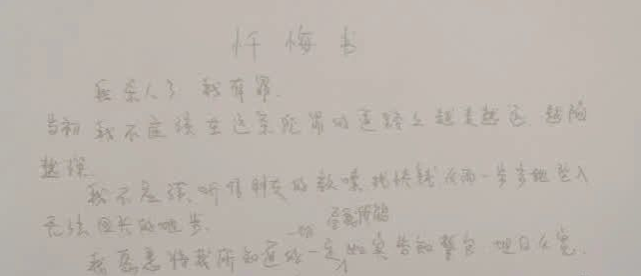 忏悔书
我杀人了 我有罪.
当初我不应该在这条犯罪的道路上越走越远 越陷
越深
我不应该听信 的教唆 从而一步步地坠入
无法回头的地步.
我愿意将我所知道的一 如实告知警官 坦白从宽.